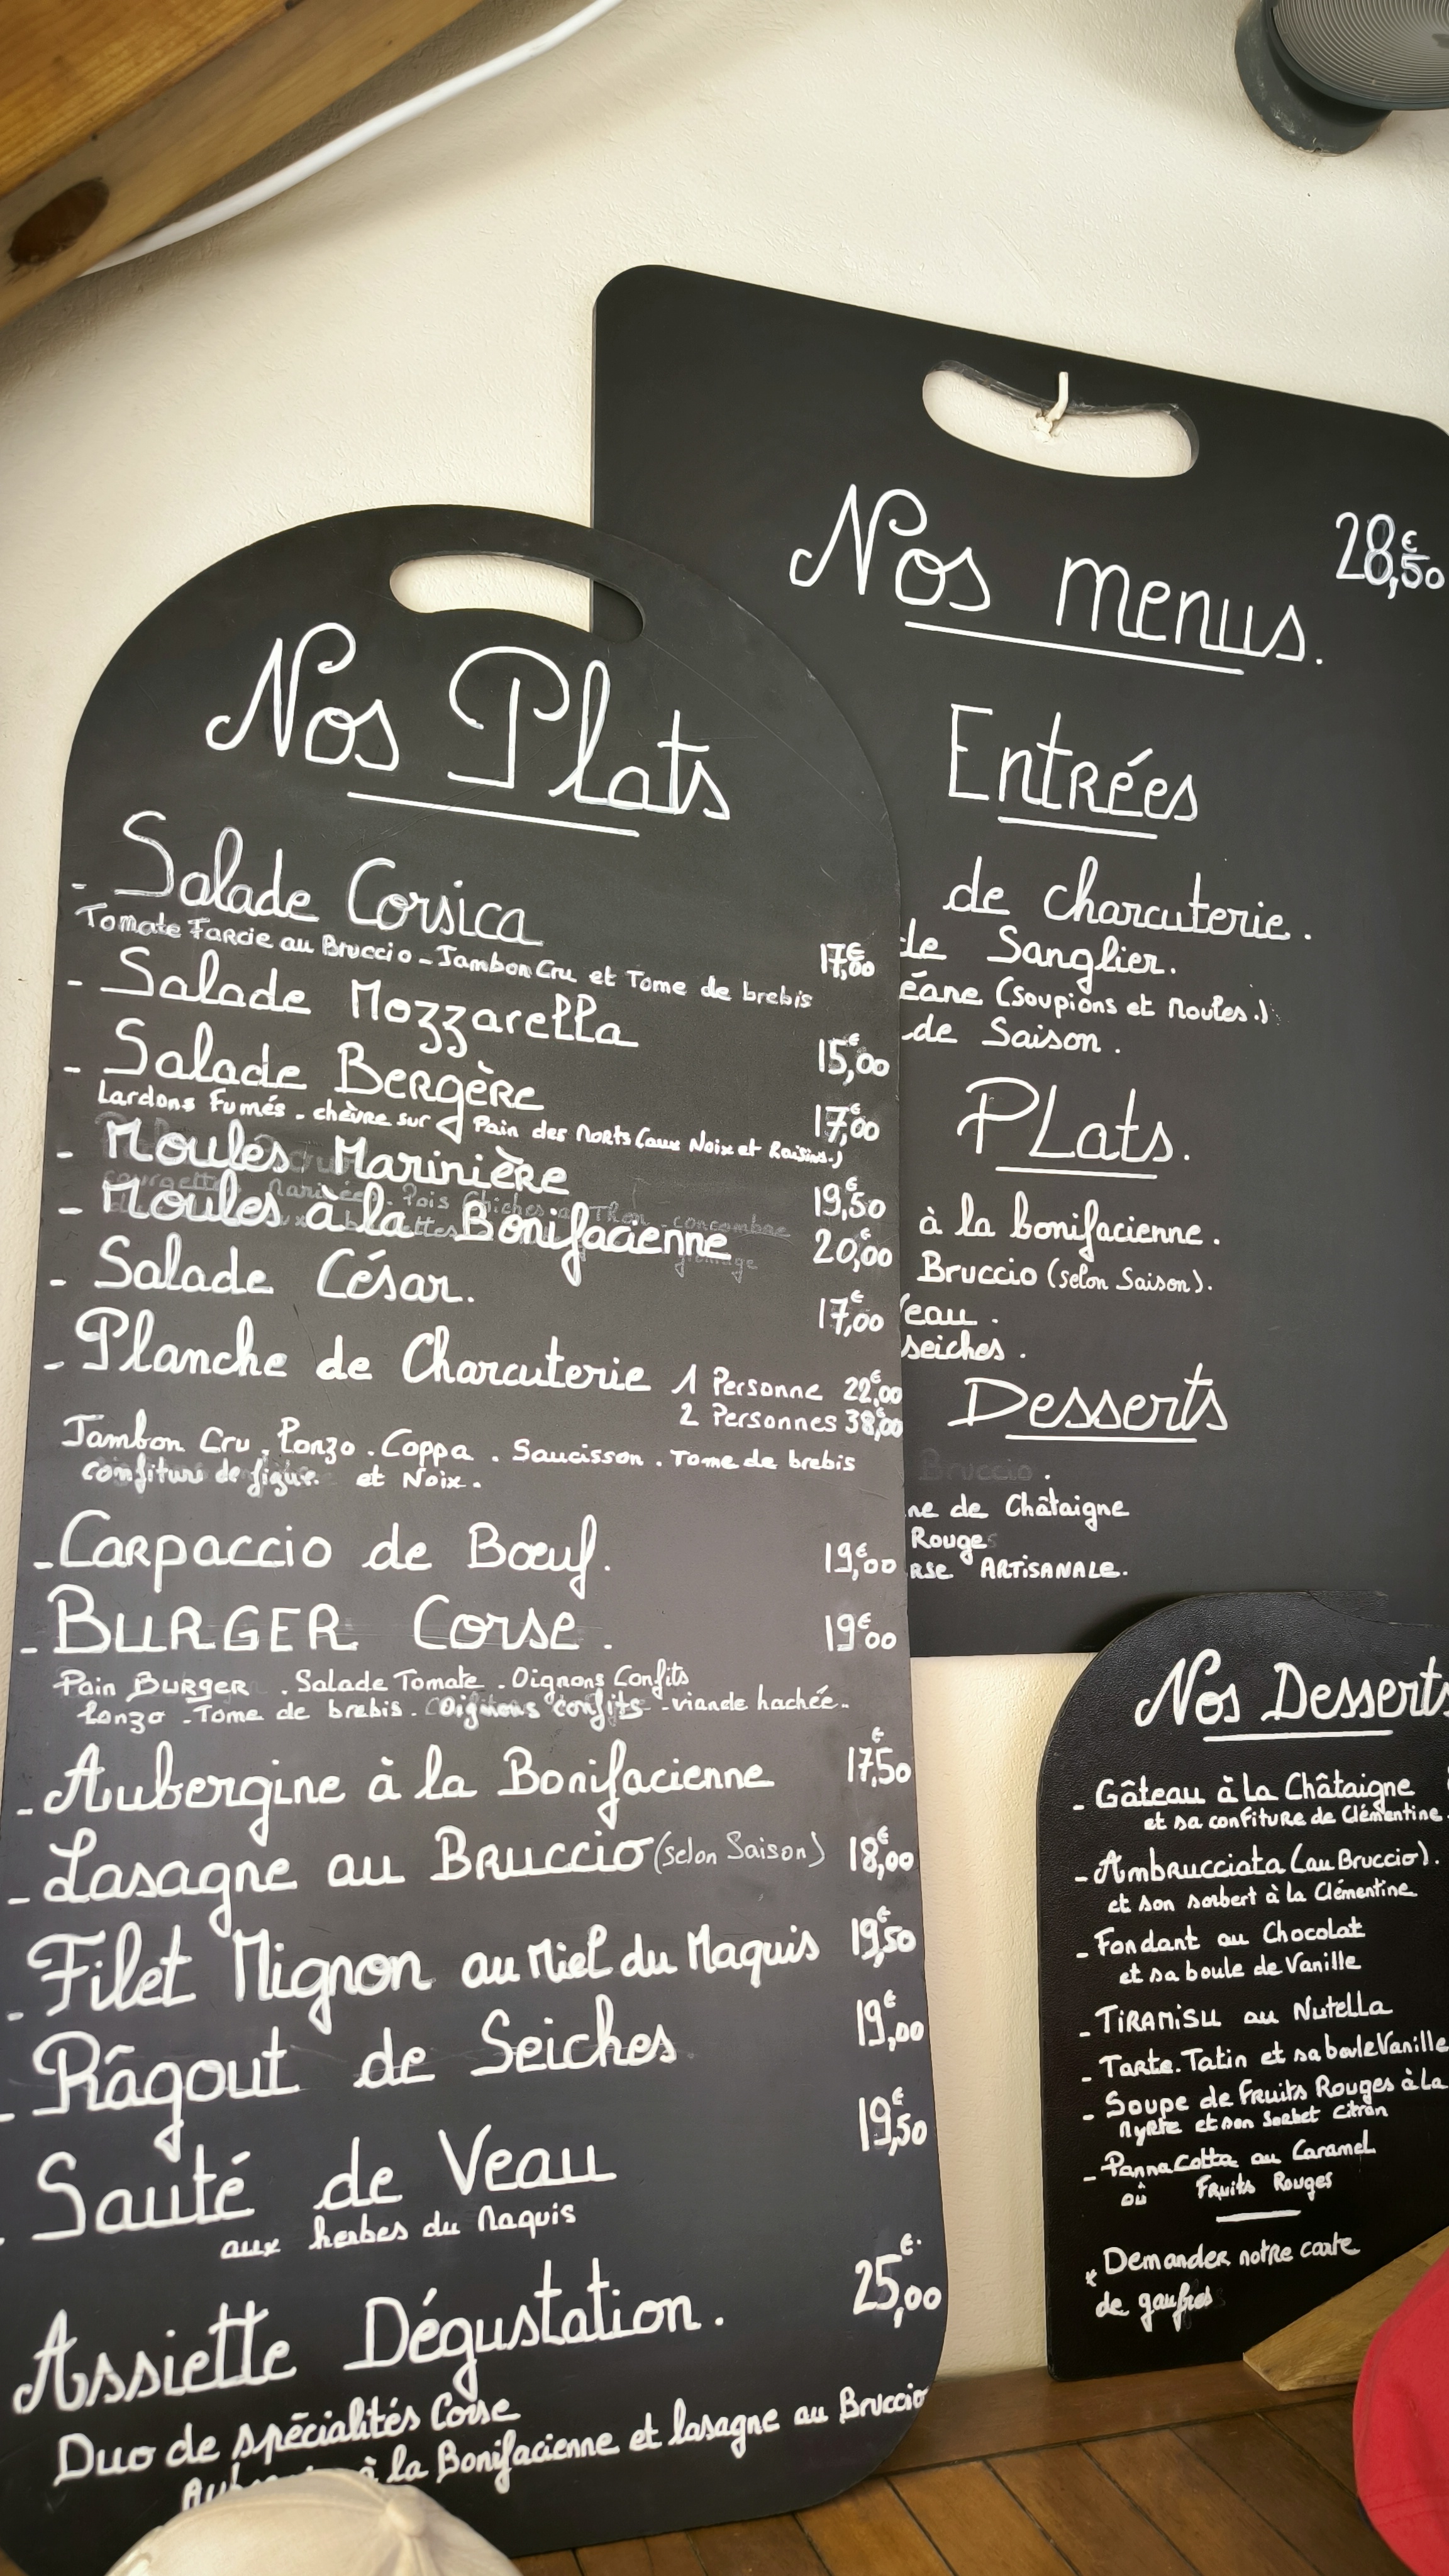 Nos Plats
- Salade Corsica
Tomate Farcie au Bruccio - Jambon Cru et Tome de brebis 17,00€
- Salade Mozzarella 15,00€
- Salade Bergère 17,00€
Lardons Fumés - chèvre sur Pain des Morts (aux Noix et Raisins.)
- Moules Marinière 19,50€
- Moules à la Bonifacienne 20,00€
- Salade César. 17,00€
- Planche de Charcuterie 1 Personne 22,00€
2 Personnes 38,00€
Jambon Cru . Lonzo . Coppa . Saucisson . Tome de brebis
confiture de figue. et Noix.
- Carpaccio de Bœuf. 19,00€
- BURGER Corse. 19,00€
Pain BURGER . Salade Tomate . Oignons Confits
Lonzo - Tome de brebis. Oignons confits - viande hachée.
- Aubergine à la Bonifacienne 17,50€
- Lasagne au Bruccio (selon Saison) 18,00€
- Filet Mignon au Miel du Maquis 19,50€
- Râgout de Seiches 19,00€
- Sauté de Veau 19,50€
aux herbes du Maquis
Assiette Dégustation. 25,00€
Duo de spécialités Corse
à la Bonifacienne et lasagne au Bruccio
Nos menus. 28,50€
Entrées
de charcuterie.
de Sanglier.
éane (Soupions et Moules.)
de Saison.
PLats.
à la bonifacienne.
Bruccio (selon Saison).
eau.
seiches.
Desserts
Bruccio.
ne de Châtaigne
Rouges
RSE ARTISANALE.
Nos Desserts
- Gâteau à La Châtaigne
et sa confiture de Clémentine.
- Ambrucciata (au Bruccio).
et son sorbert à la Clémentine
- Fondant au Chocolat
et sa boule de Vanille
- TiRAMiSU au Nutella
- Tarte. Tatin et sa boule Vanille
- Soupe de Fruits Rouges à La
Myrte et son Sorbet Citron
- Panna Cotta au Caramel
où Fruits Rouges
* Demander notre carte
de gaufres